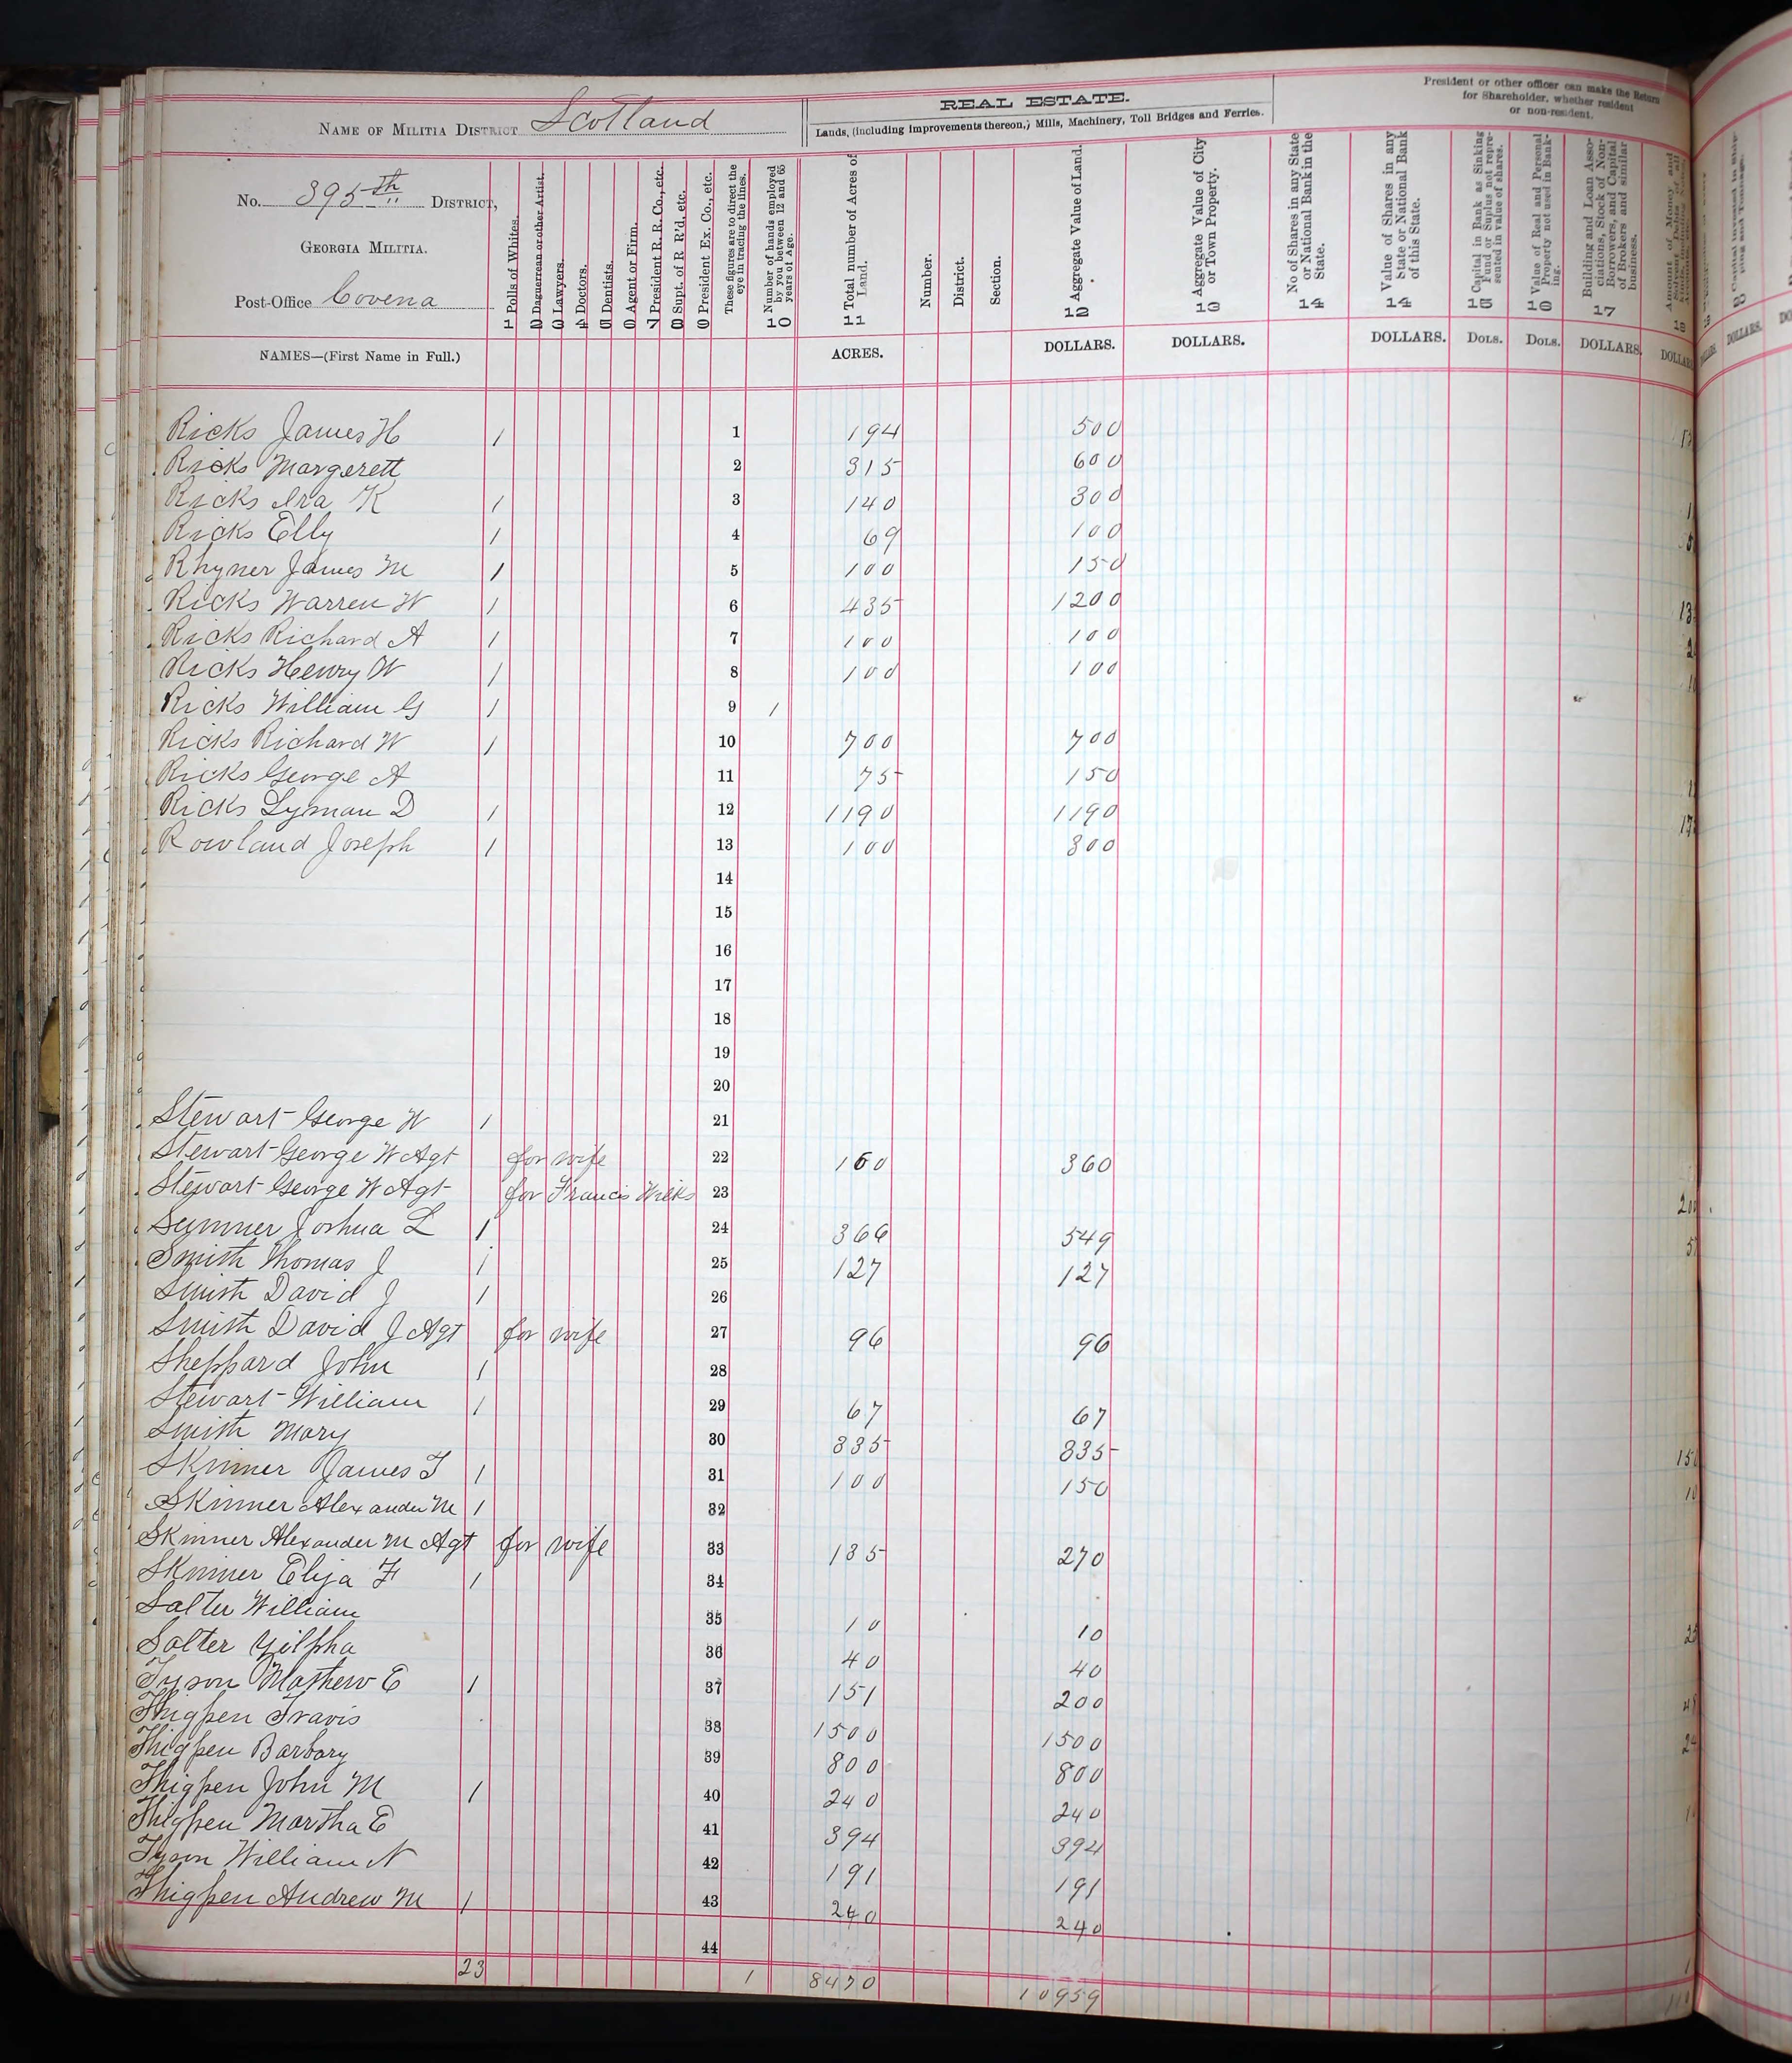 NAME OF MILITIA DISTRICT Scotland
No. 395th DISTRICT,
GEORGIA MILITIA.
Post-Office Covena
NAMES—(First Name in Full.)
1 Polls of Whites.
2 Daguerrean or other Artist.
3 Lawyers.
4 Doctors.
5 Dentists.
6 Agent or Firm.
7 President R. R. Co., etc.
8 Supt. of R R'd, etc.
9 President Ex. Co., etc.
These figures are to direct the eye in tracing the lines.
10 Number of hands employed by you between 12 and 65 years of Age.
REAL ESTATE.
Lands, (including improvements thereon,) Mills, Machinery, Toll Bridges and Ferries.
11 Total number of Acres of Land.
ACRES.
Number.
District.
Section.
12 Aggregate Value of Land.
DOLLARS.
13 Aggregate Value of City or Town Property.
DOLLARS.
President or other officer can make the Return
for Shareholder, whether resident
or non-resident.
14 No of Shares in any State or National Bank in the State.
14 Value of Shares in any State or National Bank of this State.
DOLLARS.
15 Capital in Bank as Sinking Fund or Suplus not represented in value of shares.
DOLS.
16 Value of Real and Personal Property not used in Banking.
DOLS.
17 Building and Loan Associations, Stock of Non-Borrowers, and Capital of Brokers and similar business.
DOLLARS.
18
Ricks James H 1 1 194 500
Ricks Margerett 2 315 600
Ricks Ira K 1 3 140 300
Ricks Elly 1 4 69 100
Rhyner James M 1 5 100 150
Ricks Warren W 1 6 435 1200
Ricks Richard A 1 7 100 100
Ricks Henry W 1 8 100 100
Ricks William G 1 9 1
Ricks Richard W 1 10 700 700
Ricks George A 11 75 150
Ricks Lyman D 1 12 1190 1190
Rowland Joseph 1 13 100 300
14
15
16
17
18
19
20
Stewart George W 1 21
Stewart George W Agt for wife 22 160 360
Stewart George W Agt for Francis Wilks 23
Sumner Joshua L 1 24 366 549
Smith Thomas J 1 25 127 127
Smith David J 1 26
Smith David J Agt for wife 27 96 96
Sheppard John 1 28
Stewart William 1 29 67 67
Smith Mary 30 335 335
Skinner James T 1 31 100 150
Skinner Alexander M 1 32
Skinner Alexander M Agt for wife 33 135 270
Skinner Elija F 1 34
Salter William 35 10 10
Salter Zilpha 36 40 40
Tyson Mathew E 1 37 151 200
Thigpen Travis 38 1500 1500
Thigpen Barbary 39 800 800
Thigpen John M 1 40 240 240
Thigpen Martha E 41 394 394
Tyson William N 42 191 191
Thigpen Andrew M 1 43 240 240
44
23 1 8470 10959